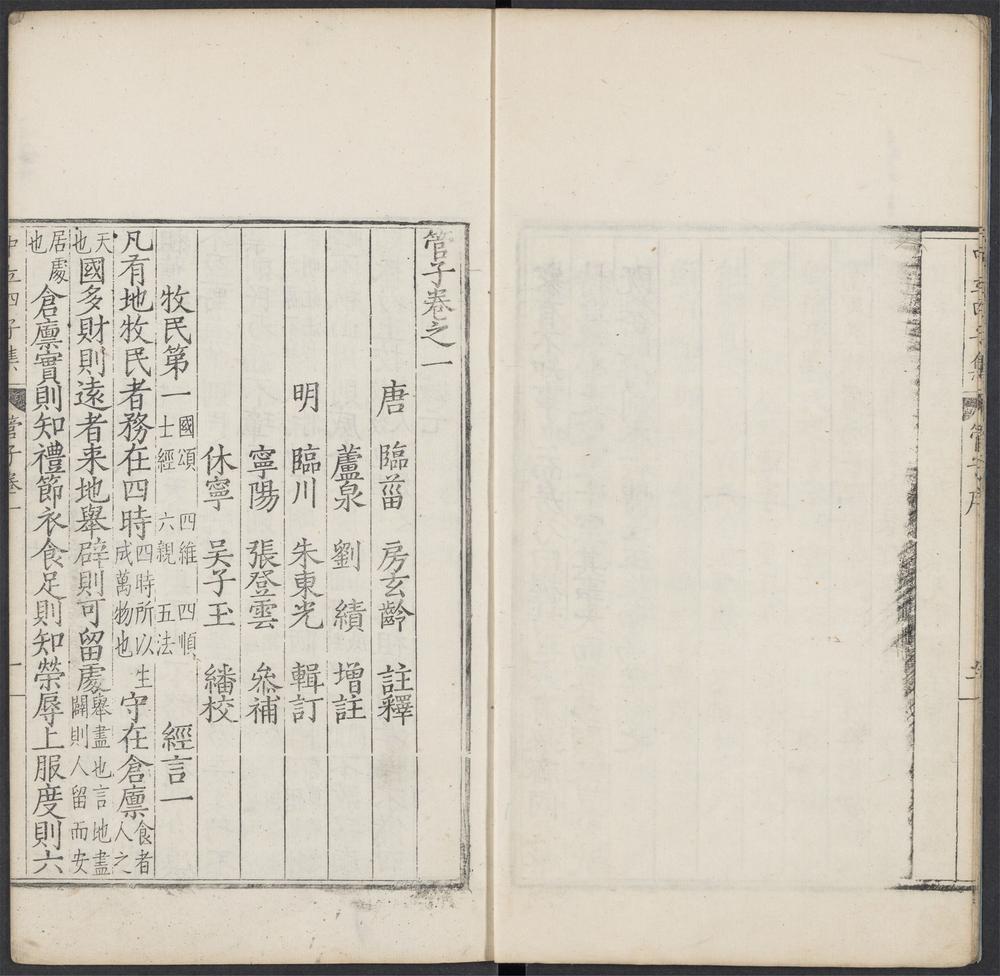 管子卷之一
唐 臨菑 房玄齡 註釋
蘆泉 劉績 增註
明 臨川 朱東光 輯訂
寧陽 張登雲 叅補
休寧 吴子玉 繙校
牧民第一 國頌 四維 四順 士經 六親 五法 經言一
凡有地牧民者務在四時四時所以生成萬物也守在倉廪食者人之
天也國多財則遠者来地舉辟則可留處舉盡也言地盡闢則人留而安
居處也倉廪實則知禮節衣食足則知榮辱上服度則六
中立四子集 管子卷一 一